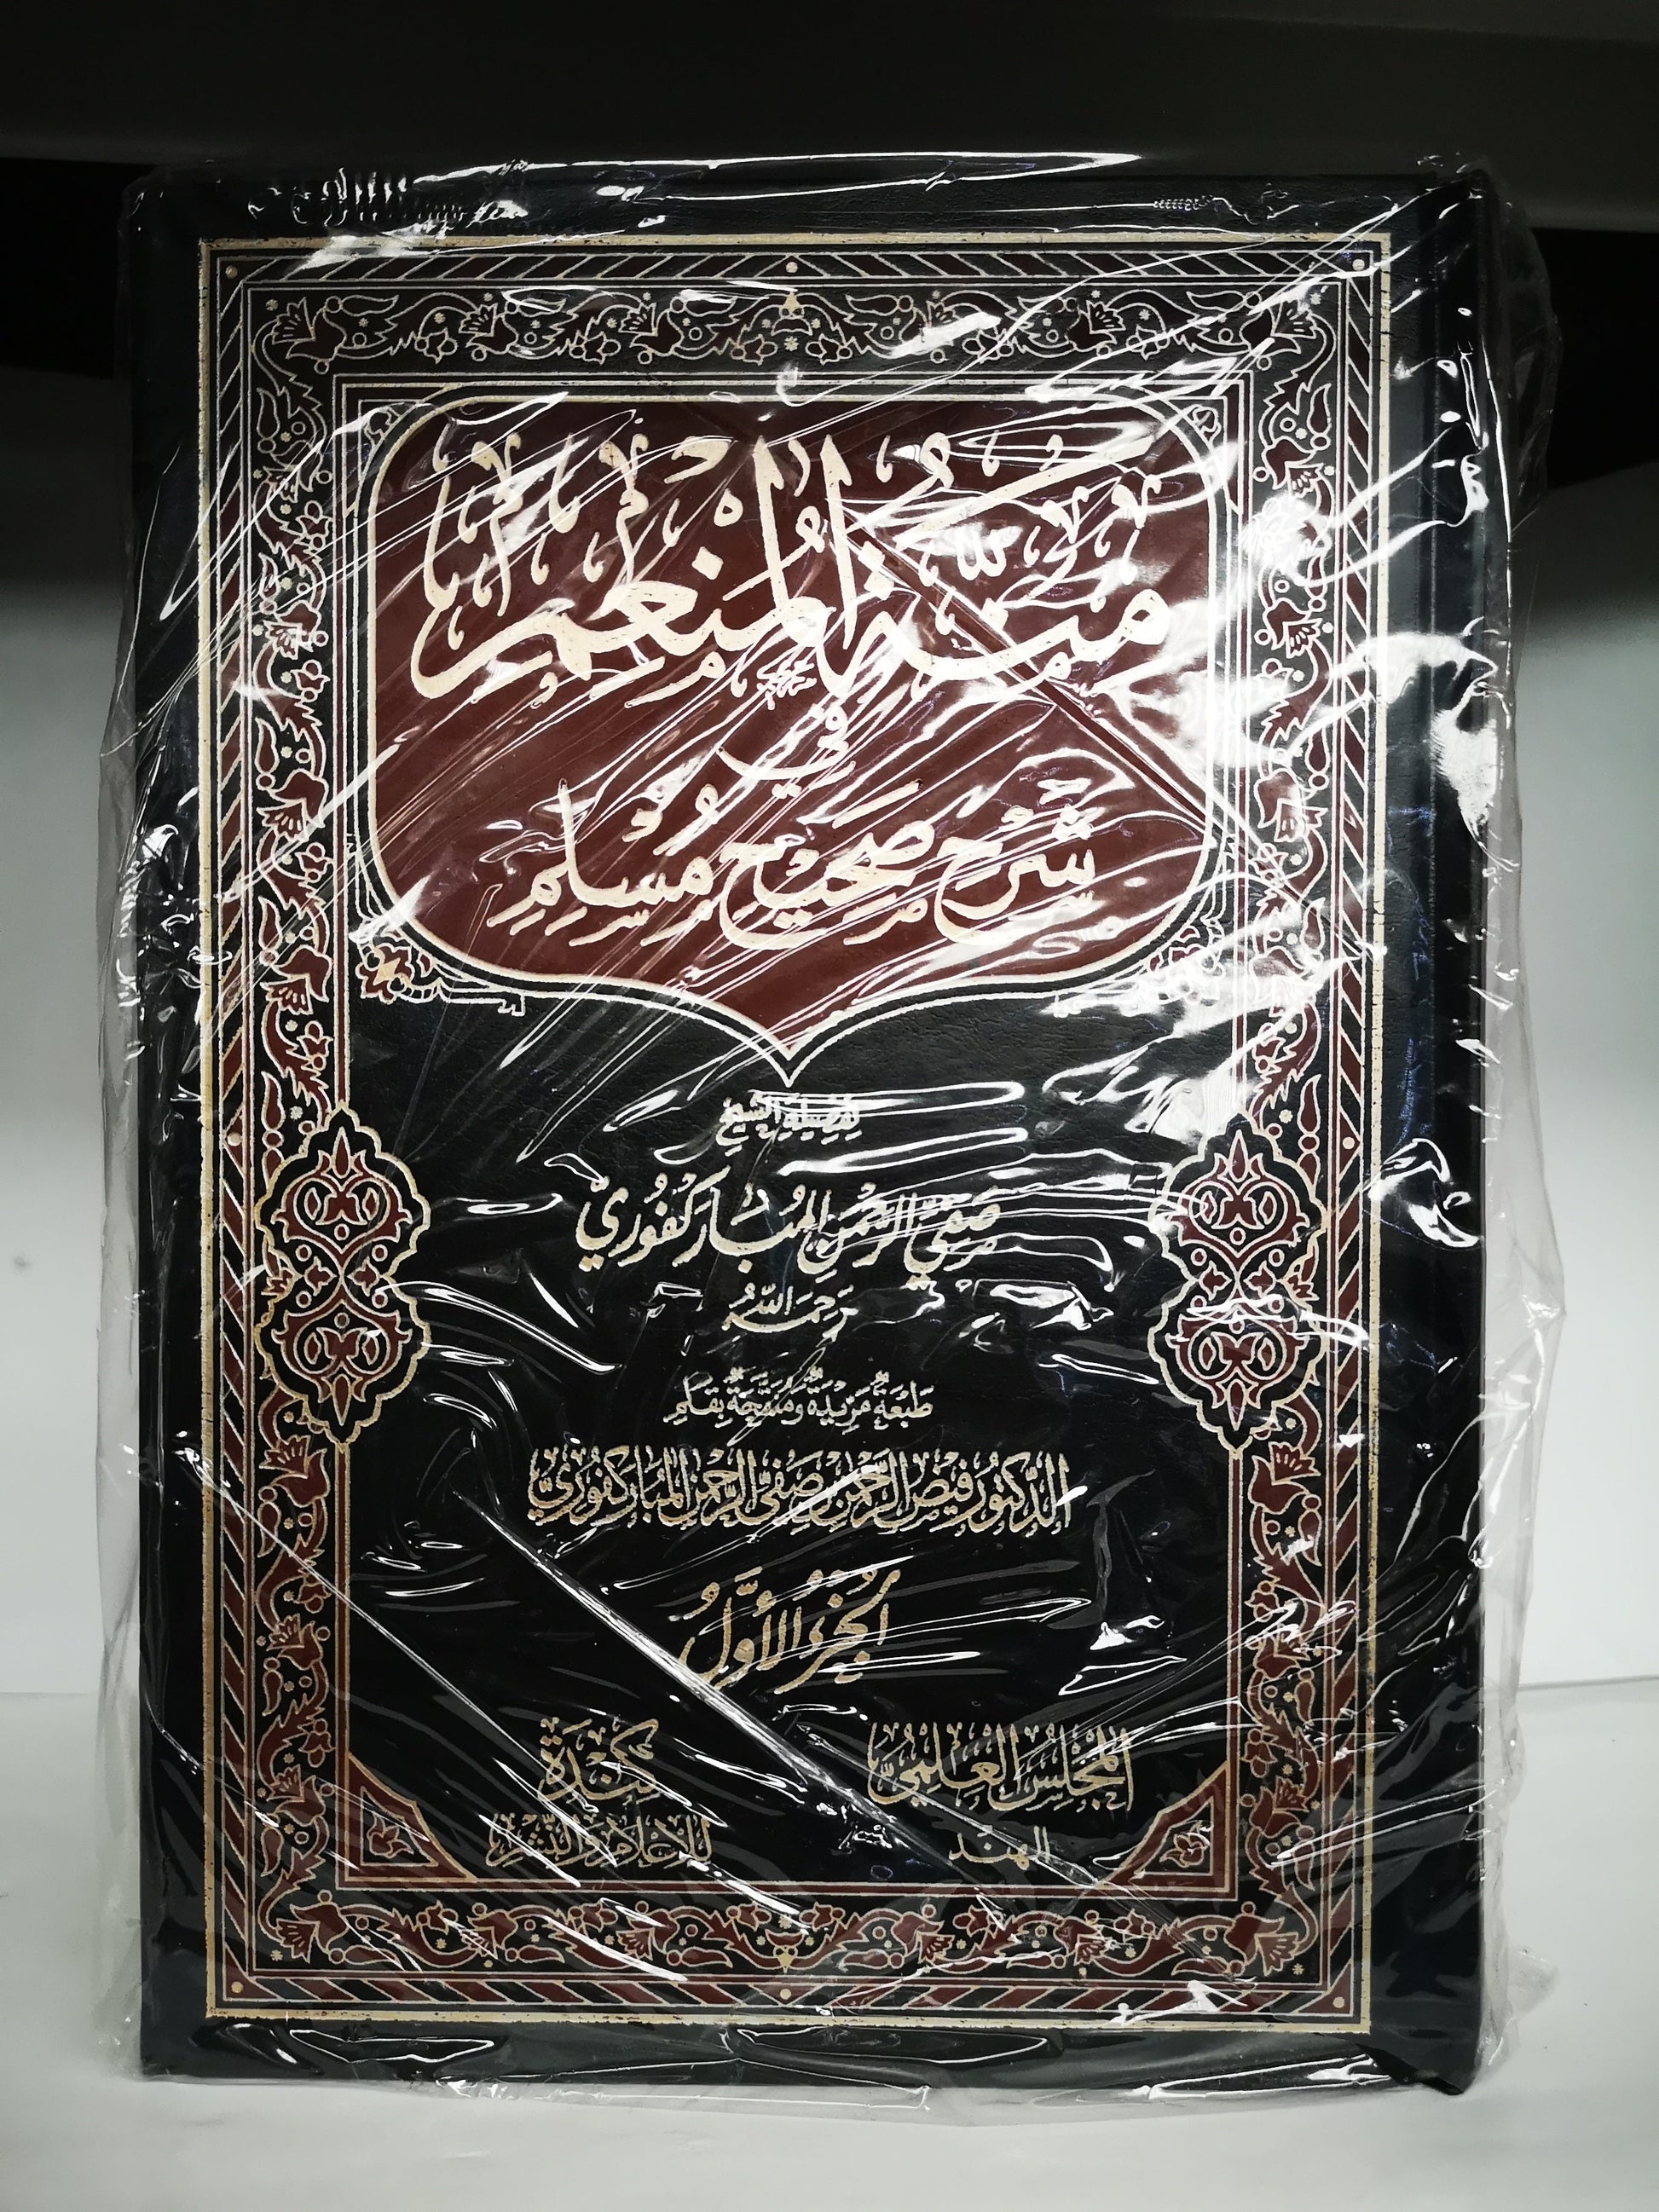 مِنَّةُ المُنْعِمِ
في
شَرْحِ صَحِيْحِ مُسْلِمِ
لفضيلة الشيخ
صَفِيِّ الرَّحْمٰنِ المُبَارَكْفُورِيِّ
رَحِمَهُ اللّٰهُ
طَبْعَةٌ مَزِيْدَةٌ وَمُنَقَّحَةٌ بِقَلَمِ
الدَّكتُور فَيْضِ الرَّحْمٰنِ صَفِيِّ الرَّحْمٰنِ المُبَارَكفُورِيّ
الجُزْءُ الأَوَّلُ
المَجْلِسُ العِلْمِيُّ
الهند
كِنْدَة
لِلإعْلَامِ وَالنَّشْرِ